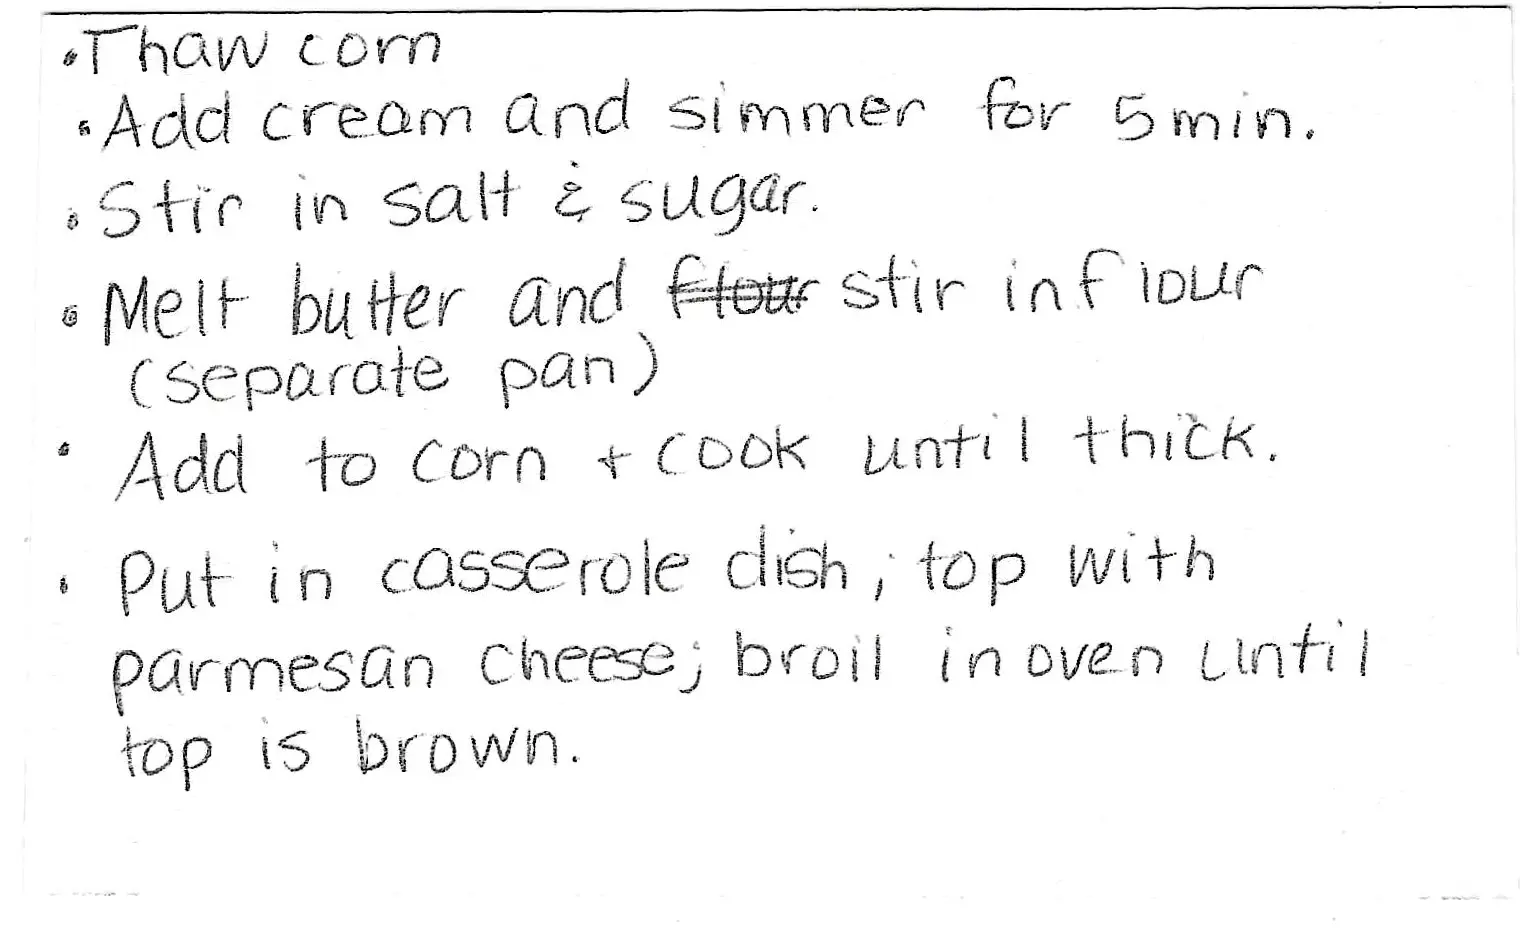 • Thaw corn
• Add cream and simmer for 5 min.
• Stir in salt & sugar.
• Melt butter and flour stir in flour
(separate pan)
• Add to corn + cook until thick.
• Put in casserole dish; top with
parmesan cheese; broil in oven until
top is brown.